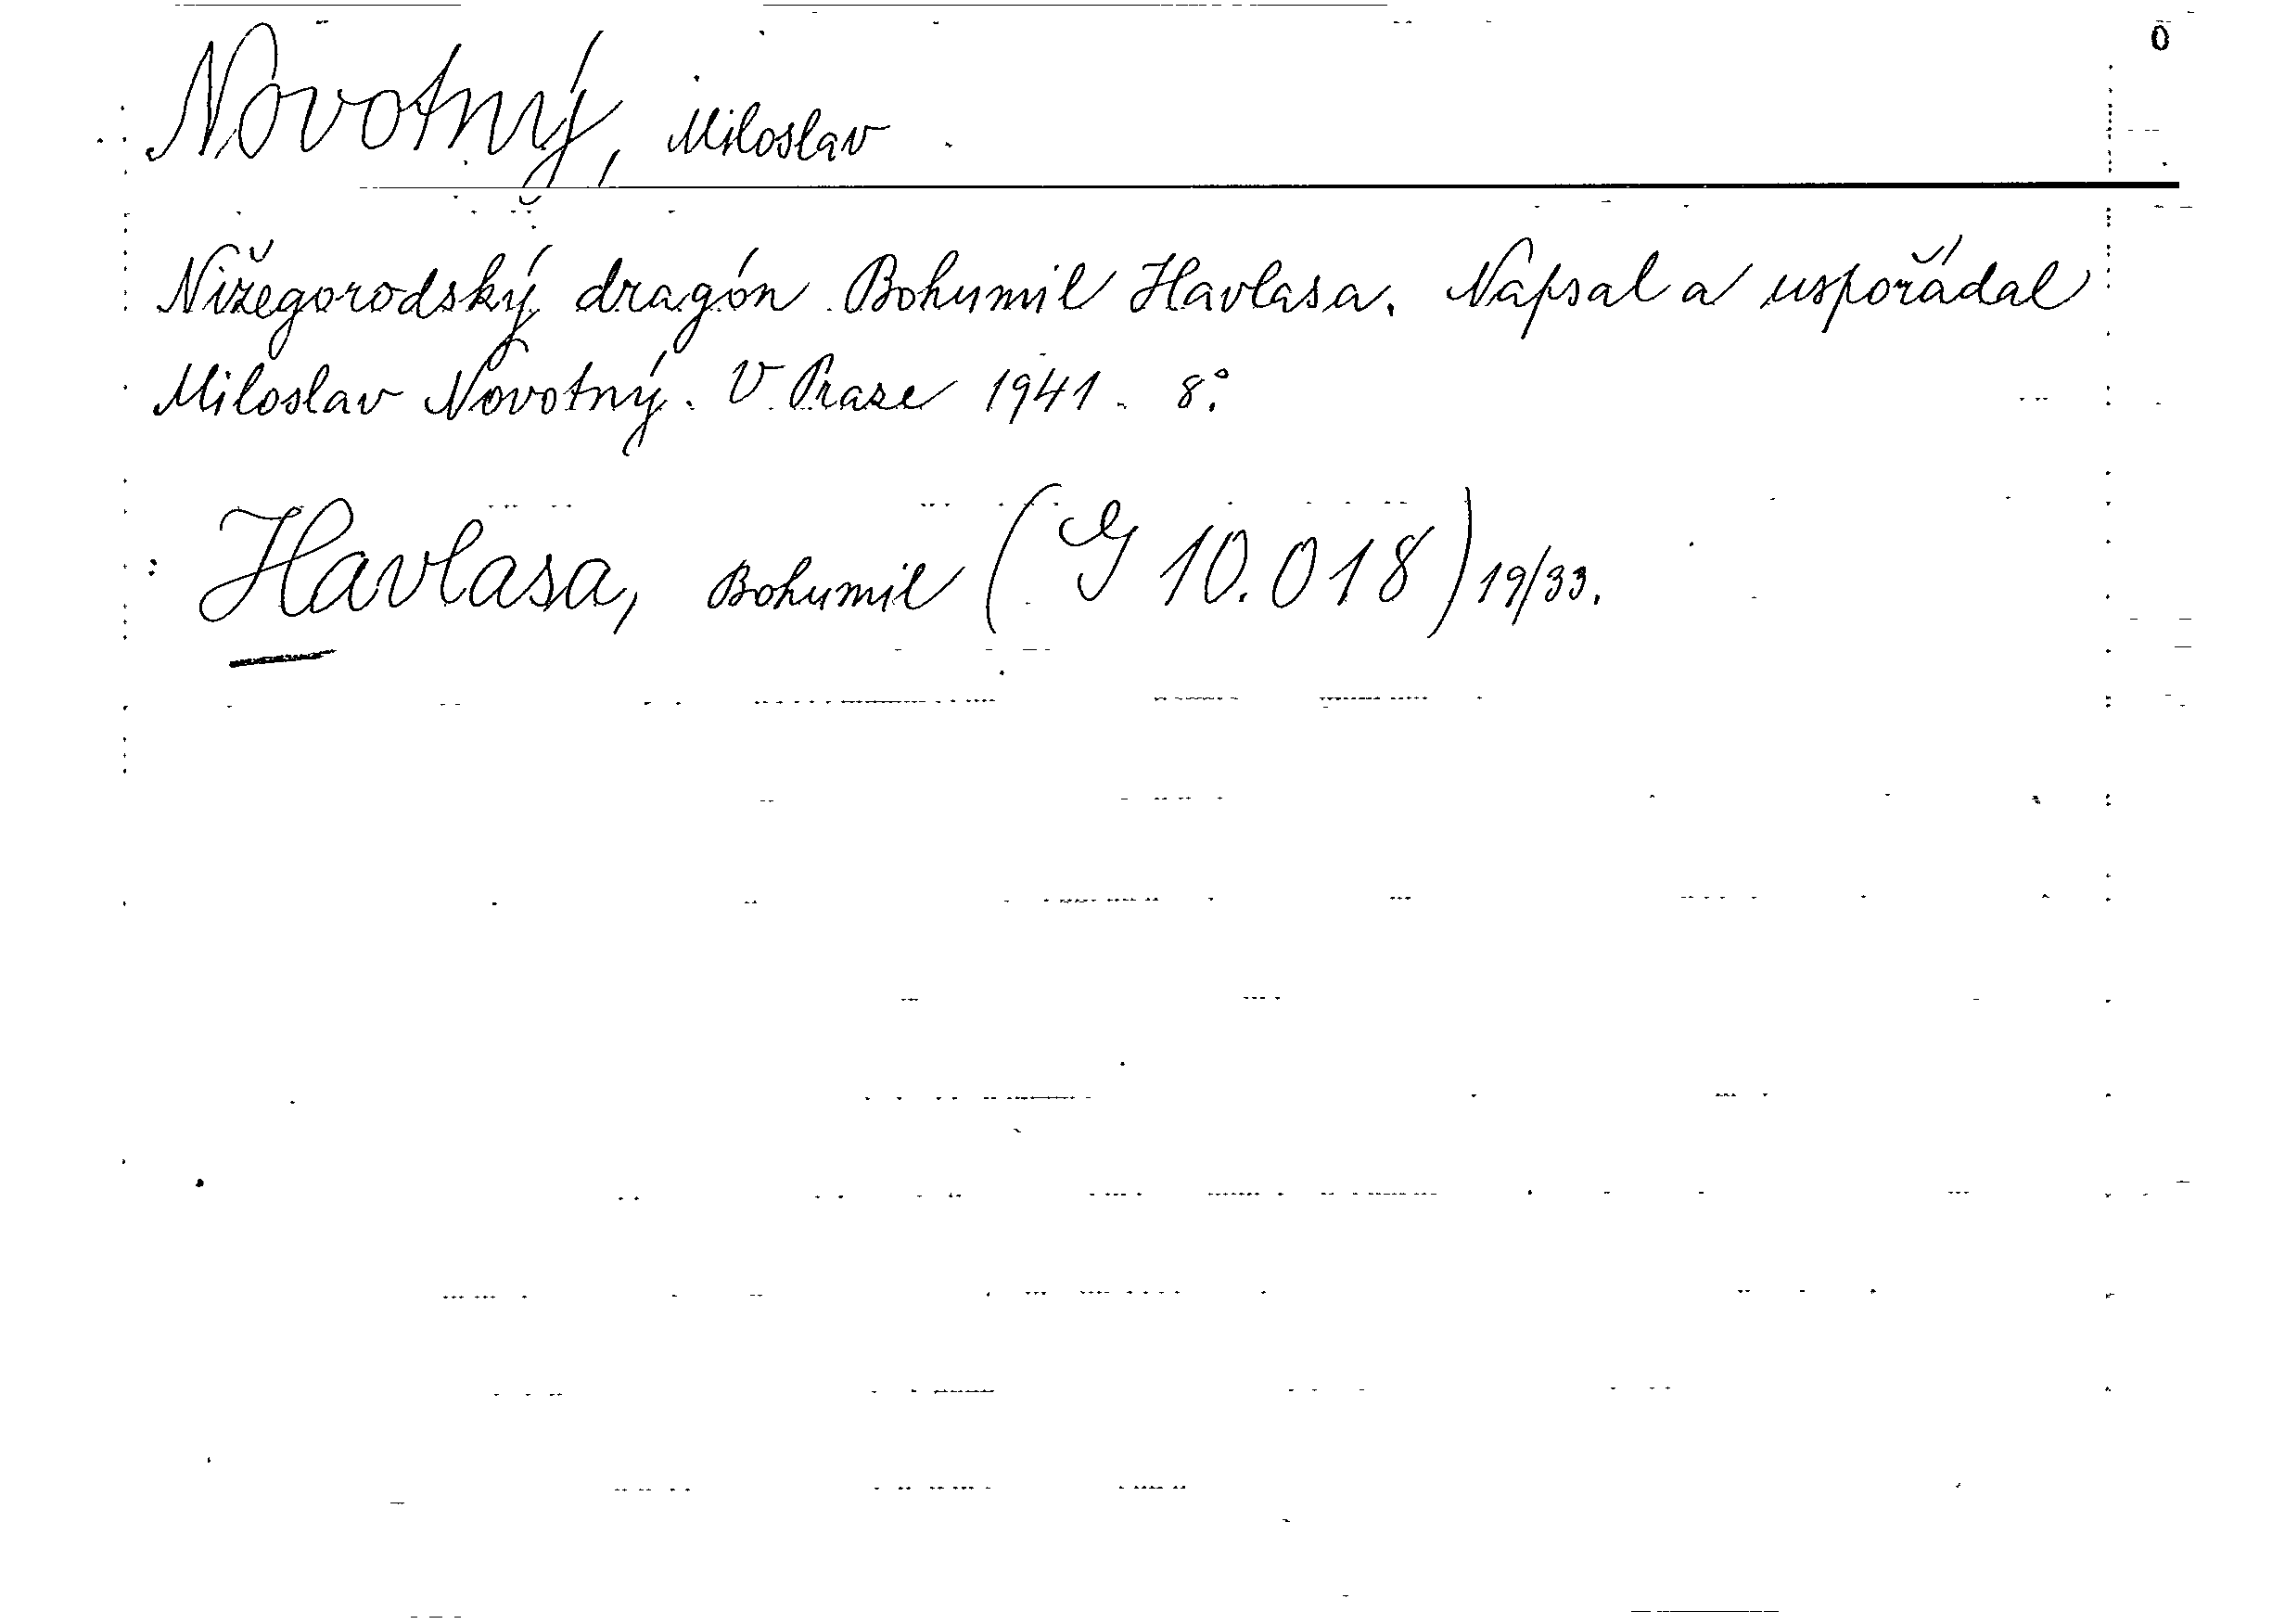 0
Novotný, Miloslav
Nižegorodský dragón Bohumil Havlasa. Napsal a uspořádal
Miloslav Novotný. V Praze 1941. 8°.
Havlasa, Bohumil (G 10.018) 19/33.